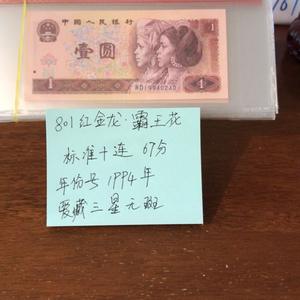 中国人民银行
壹圆
1
1
801红金龙·霸王花
标准十连 67分
年份号 1994年
爱藏三星元斑